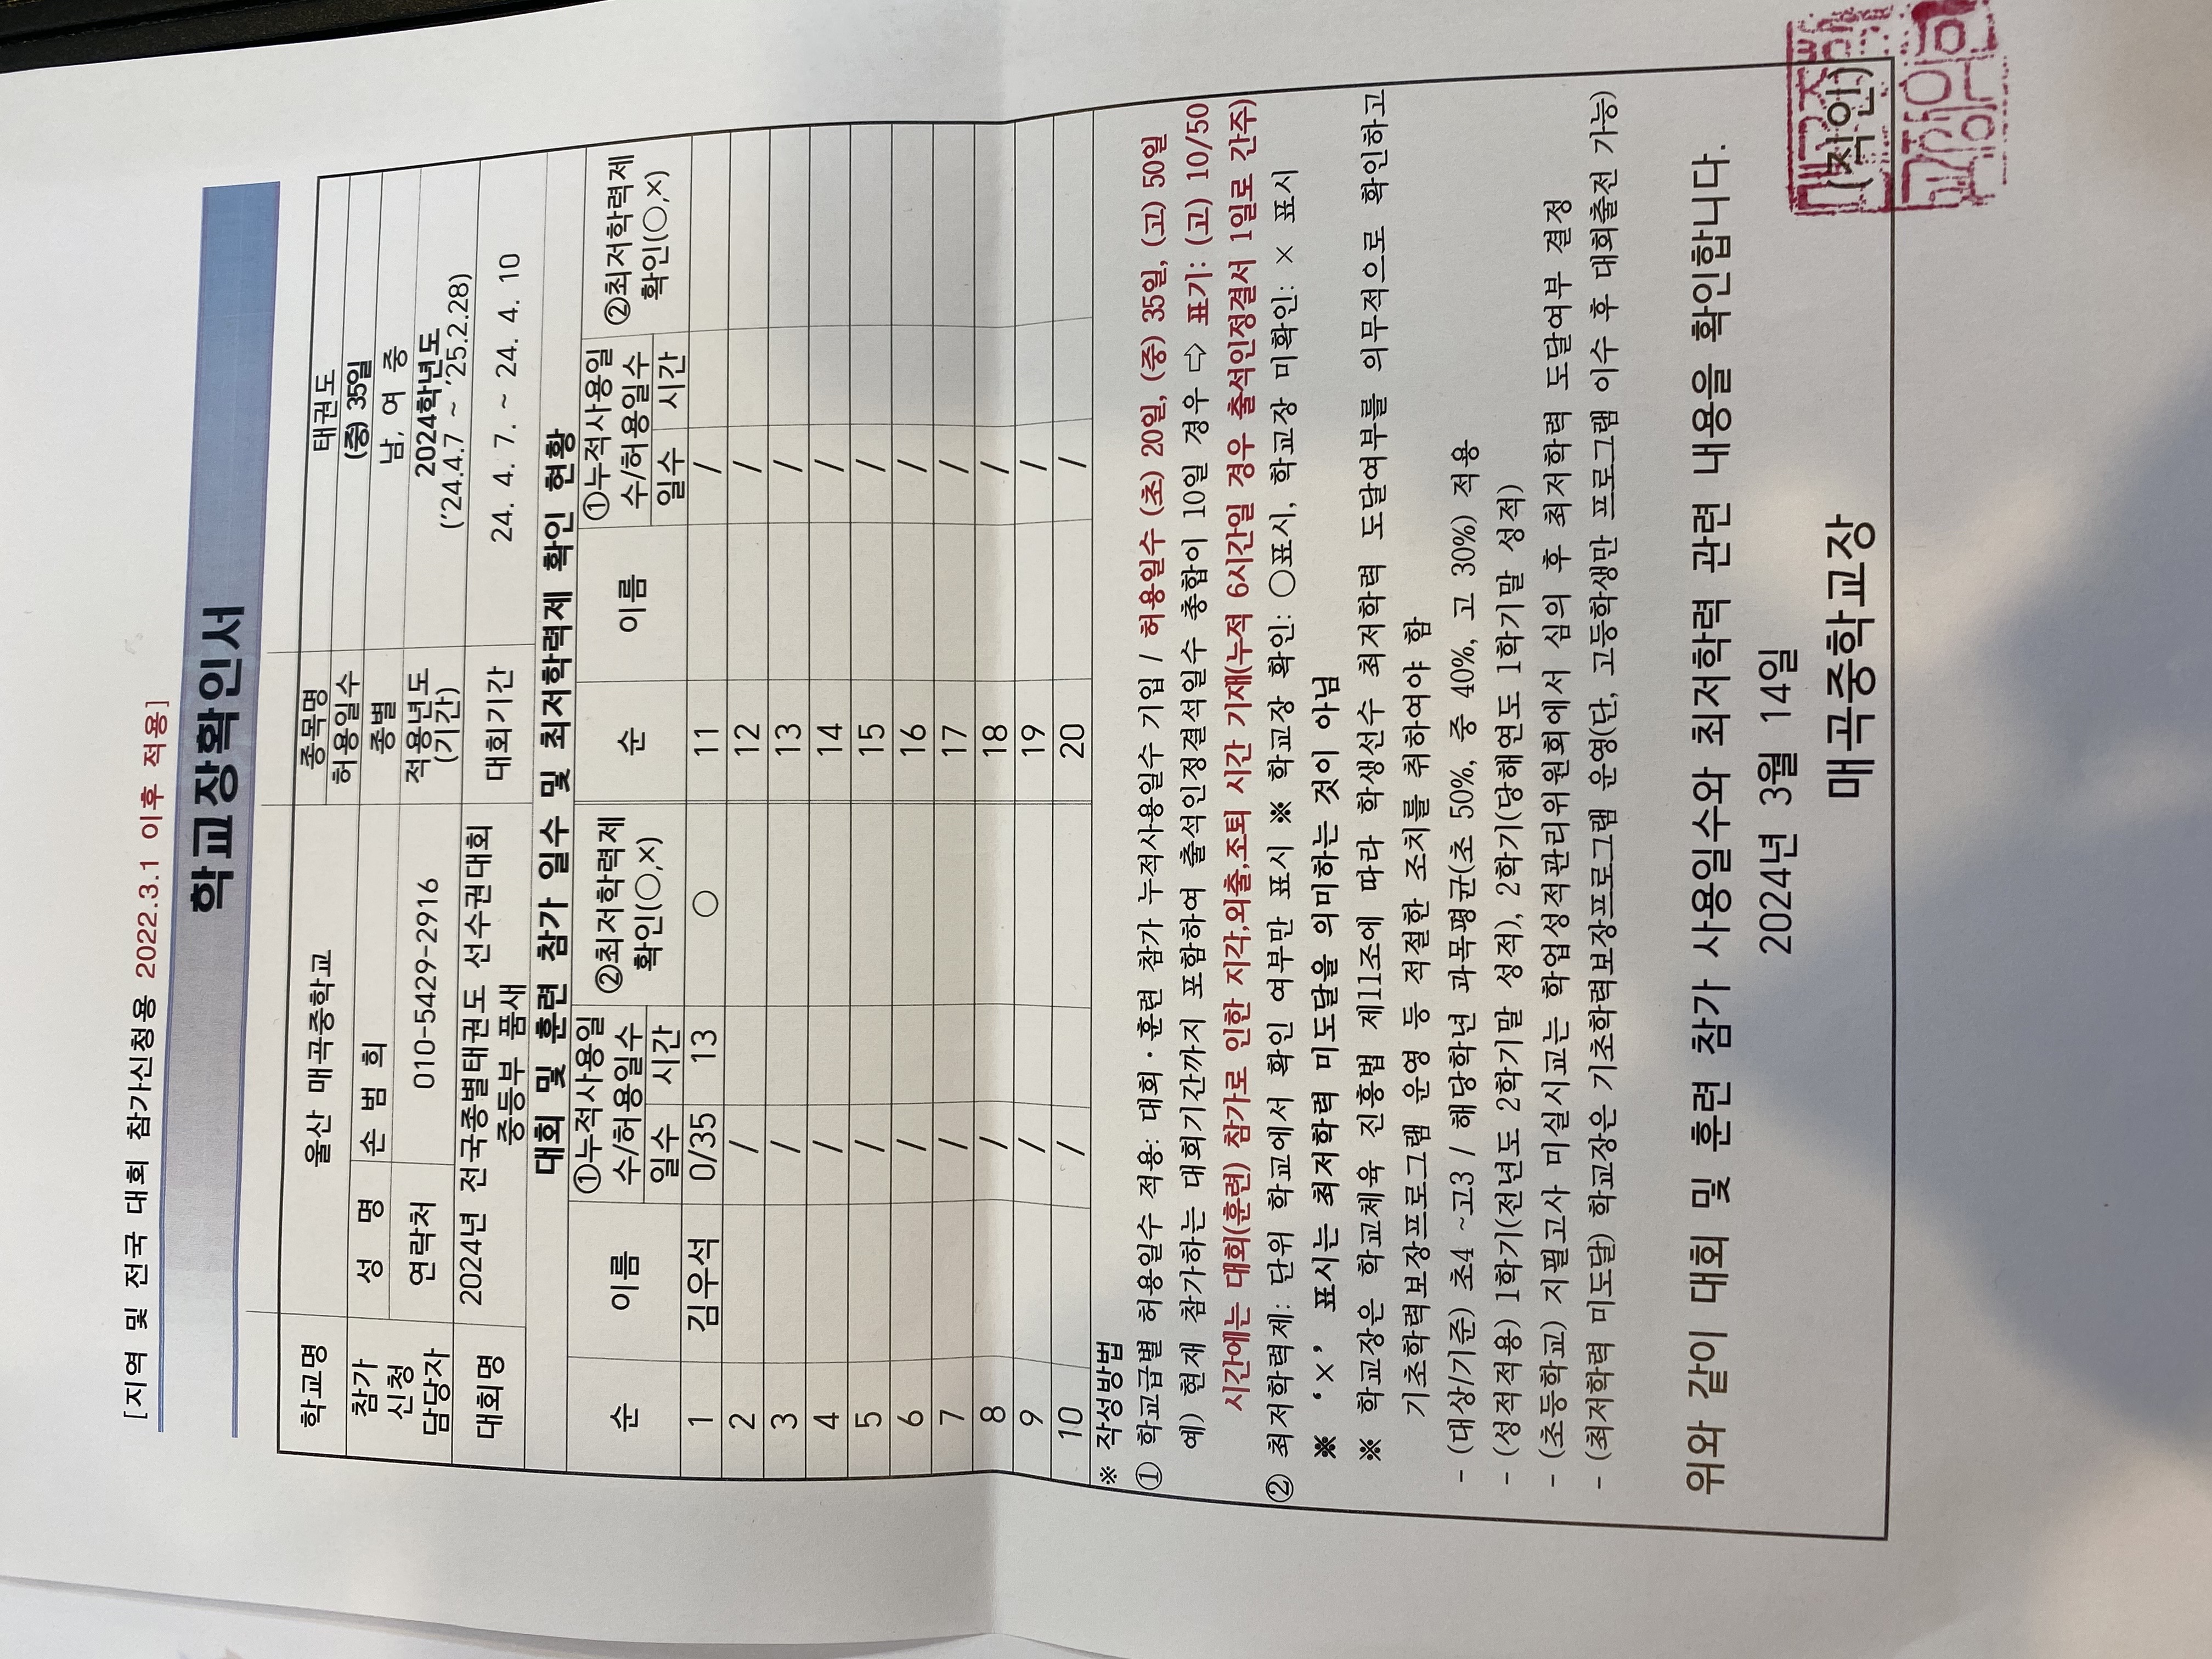 [지역 및 전국 대회 참가신청용 2022.3.1 이후 적용]
학교장확인서
학교명 울산 매곡중학교 종목명 태권도
허용일수 (중) 35일
참가 신청 담당자 성 명 손 범 희 종별 남, 여 중
연락처 010-5429-2916 적용년도 (기간) 2024학년도 ('24.4.7 ~ '25.2.28)
대회명 2024년 전국종별태권도 선수권대회 중등부 품새 대회기간 24. 4. 7. ~ 24. 4. 10
대회 및 훈련 참가 일수 및 최저학력제 확인 현황
순 이름 ①누적사용일수/허용일수 ②최저학력제 확인(○,×) 순 이름 ①누적사용일수/허용일수 ②최저학력제 확인(○,×)
일수 시간 일수 시간
1 김우석 0/35 13 ○ 11 /
2 / 12 /
3 / 13 /
4 / 14 /
5 / 15 /
6 / 16 /
7 / 17 /
8 / 18 /
9 / 19 /
10 / 20 /
※ 작성방법
① 학교급별 허용일수 적용: 대회·훈련 참가 누적사용일수 기입 / 허용일수 (초) 20일, (중) 35일, (고) 50일
예) 현재 참가하는 대회기간까지 포함하여 출석인정결석일수 총합이 10일 경우 ⇨ 표기: (고) 10/50
시간에는 대회(훈련) 참가로 인한 지각,외출,조퇴 시간 기재(누적 6시간일 경우 출석인정결석 1일로 간주)
② 최저학력제: 단위 학교에서 확인 여부만 표시 ※ 학교장 확인: ○표시, 학교장 미확인: × 표시
※ '×' 표시는 최저학력 미도달을 의미하는 것이 아님
※ 학교장은 학교체육 진흥법 제11조에 따라 학생선수 최저학력 도달여부를 의무적으로 확인하고
기초학력보장프로그램 운영 등 적절한 조치를 취하여야 함
- (대상/기준) 초4 ~고3 / 해당학년 과목평균(초 50%, 중 40%, 고 30%) 적용
- (성적적용) 1학기(전년도 2학기말 성적), 2학기(당해연도 1학기말 성적)
- (초등학교) 지필고사 미실시교는 학업성적관리위원회에서 심의 후 최저학력 도달여부 결정
- (최저학력 미도달) 학교장은 기초학력보장프로그램 운영(단, 고등학생만 프로그램 이수 후 대회출전 가능)
위와 같이 대회 및 훈련 참가 사용일수와 최저학력 관련 내용을 확인합니다.
2024년 3월 14일
매곡중학교장 (직인)